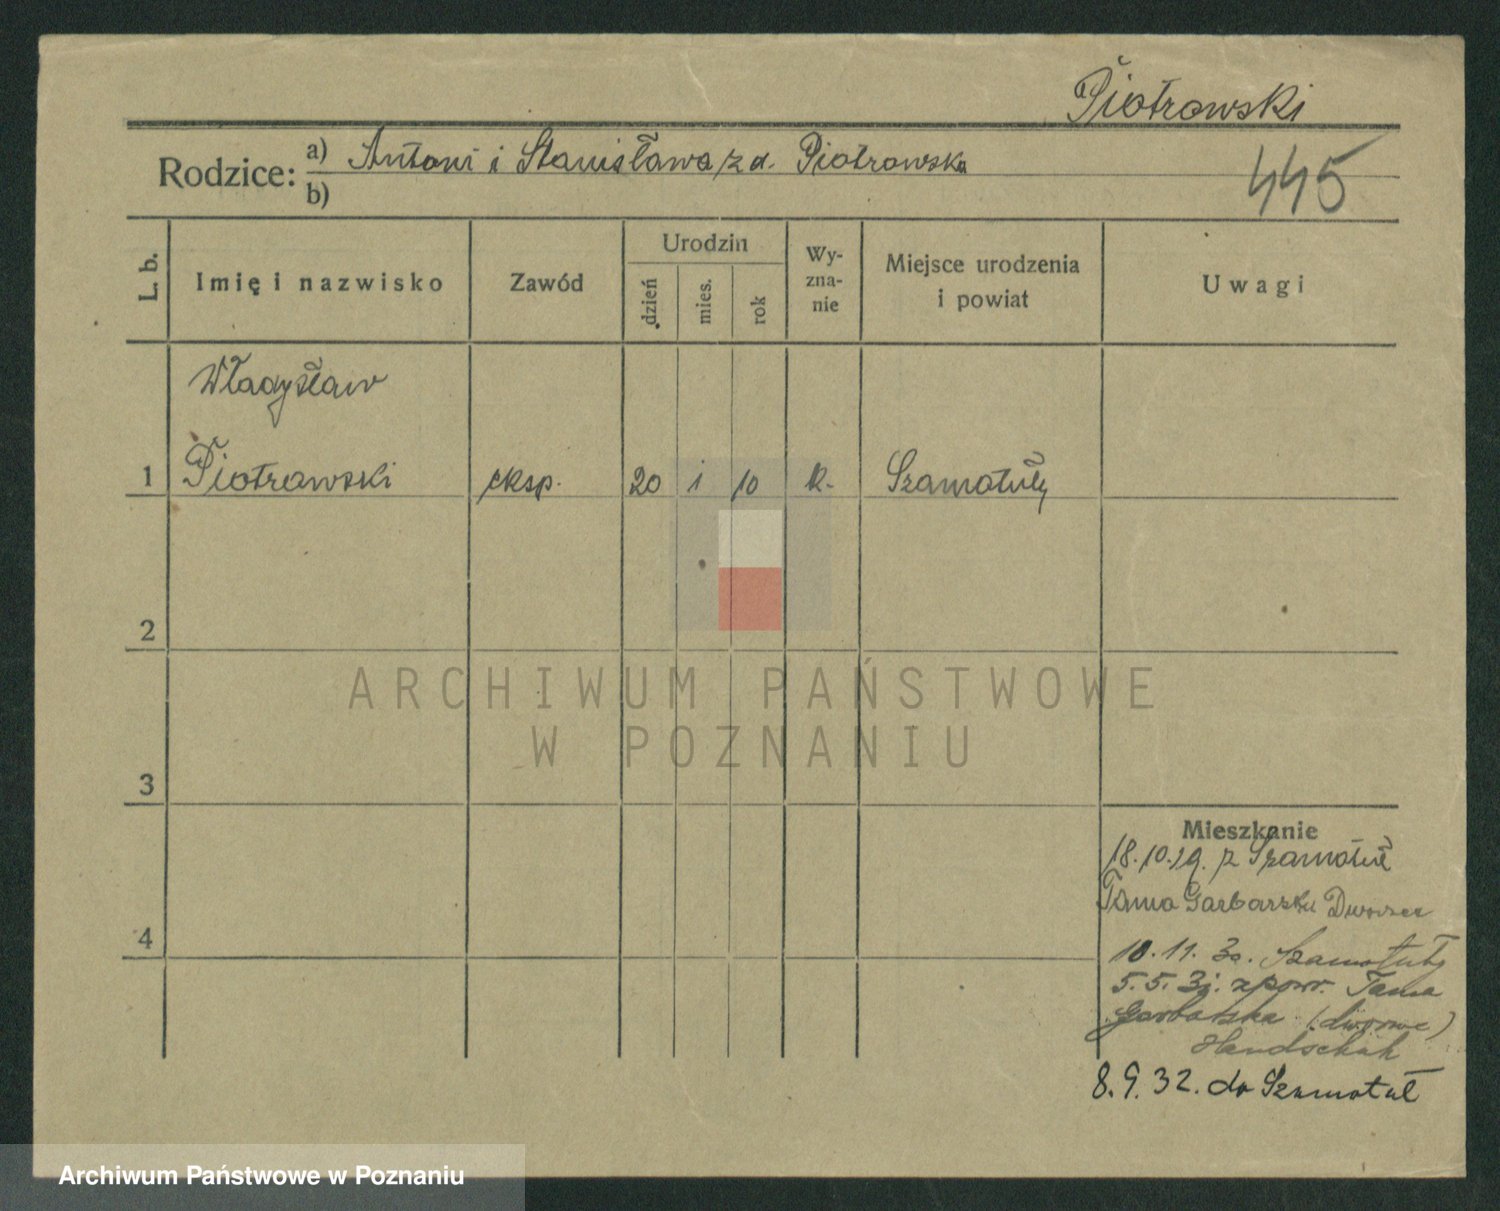 Piotrowski
Rodzice: a) Antoni i Stanisława z d. Piotrowska
b)
445
L. b.
Imię i nazwisko
Zawód
Urodzin
dzień
mies.
rok
Wy-
zna-
nie
Miejsce urodzenia
i powiat
Uwagi
Władysław
1 Piotrowski eksp. 20 1 10 k. Szamotuły
2
3
4
Mieszkanie
18.10.29. z Szamotuł
Tama Garbarska Dworzec
10.11.30. Szamotuły
5.5.31. z powr. Tama
Garbarska
Handschuh
8.9.32. do Szamotuł
ARCHIWUM PAŃSTWOWE
W POZNANIU
Archiwum Państwowe w Poznaniu